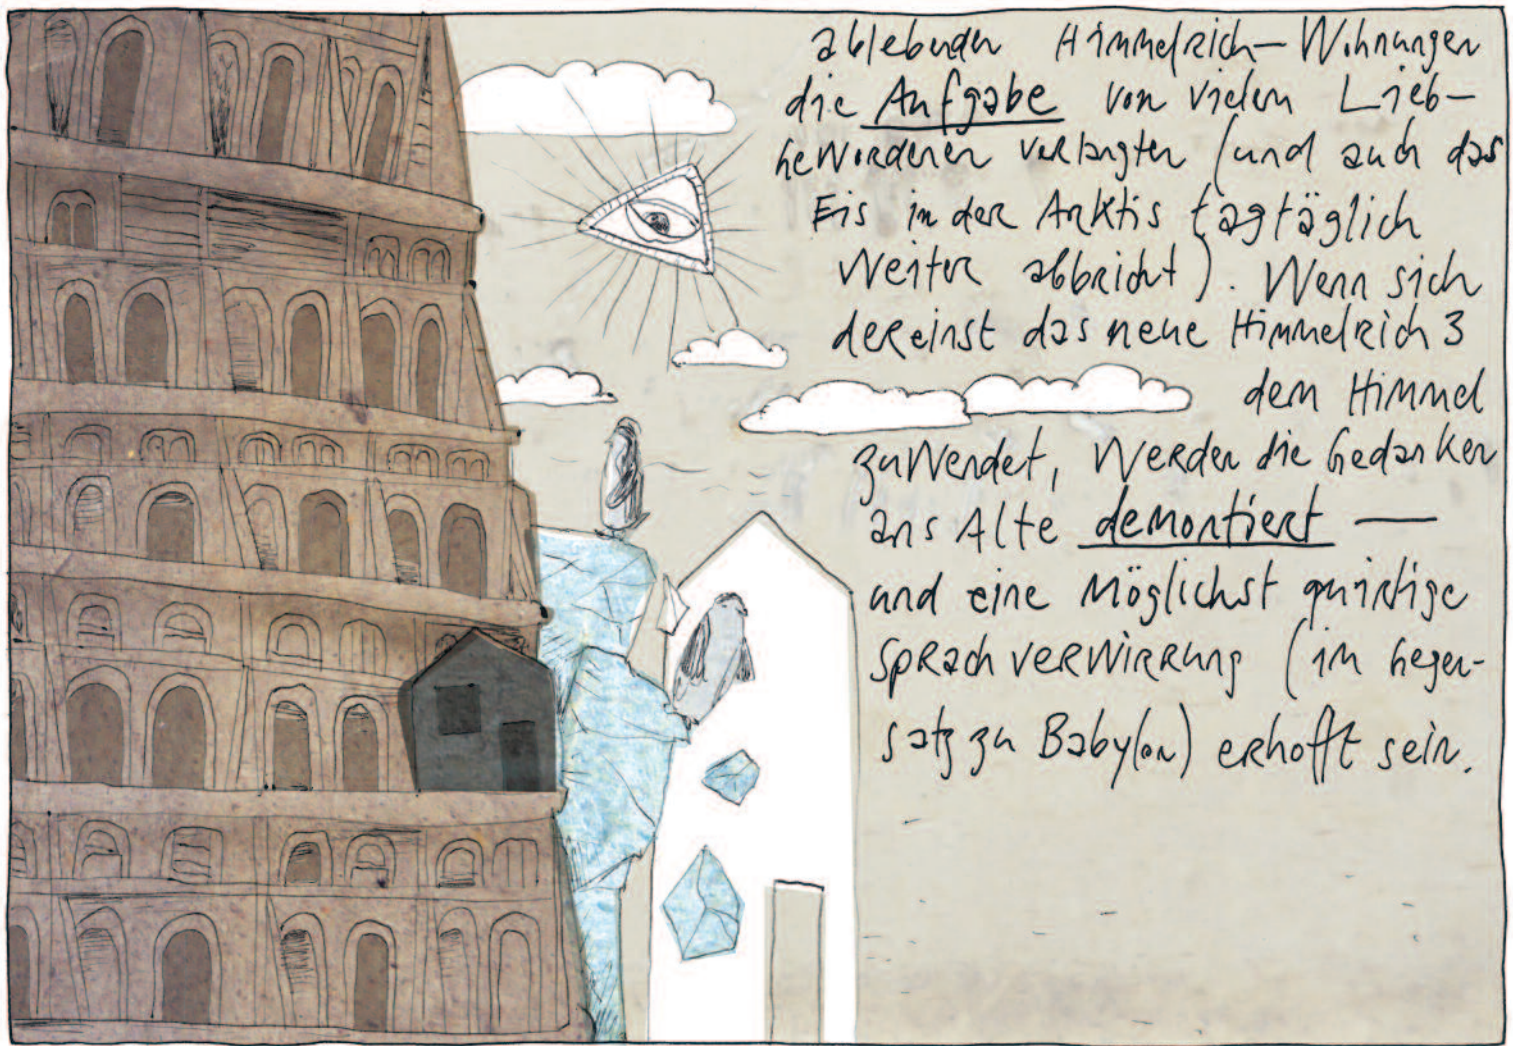 ablebenden Himmelrich-Wohnungen
die Aufgabe von vielem Lieb-
gewordenen verlangten (und auch das
Eis in der Arktis tagtäglich
weiter abbricht). Wenn sich
dereinst das neue Himmelrich 3
dem Himmel
zuwendet, werden die Gedanken
ans Alte demontiert —
und eine möglichst quirlige
Sprachverwirrung (im Gegen-
satz zu Babylon) erhofft sein.